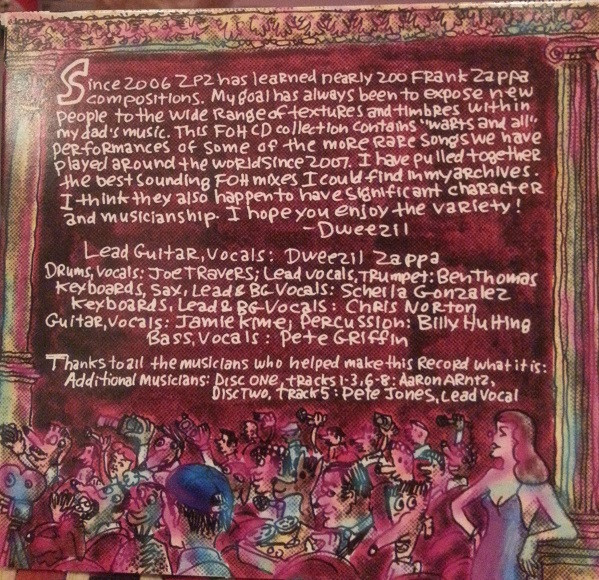 Since 2006 ZPZ has learned nearly 200 Frank Zappa
compositions. My goal has always been to expose new
people to the wide range of textures and timbres within
my dad's music. This FOH CD collection contains "warts and all"
performances of some of the more rare songs we have
played around the world since 2007. I have pulled together
the best sounding FOH mixes I could find in my archives.
I think they also happen to have significant character
and musicianship. I hope you enjoy the variety!
-Dweezil
Lead Guitar, Vocals: Dweezil Zappa
Drums, Vocals: Joe Travers; Lead Vocals, Trumpet: Ben Thomas
Keyboards, Sax, Lead & BG Vocals: Scheila Gonzalez
Keyboards, Lead & BG Vocals: Chris Norton
Guitar, Vocals: Jamie Kime; Percussion: Billy Hulting
Bass, Vocals: Pete Griffin
Thanks to all the musicians who helped make this Record what it is:
Additional Musicians: Disc One, tracks 1-3, 6-8: Aaron Arntz,
Disc Two, Track 5: Pete Jones, Lead Vocal